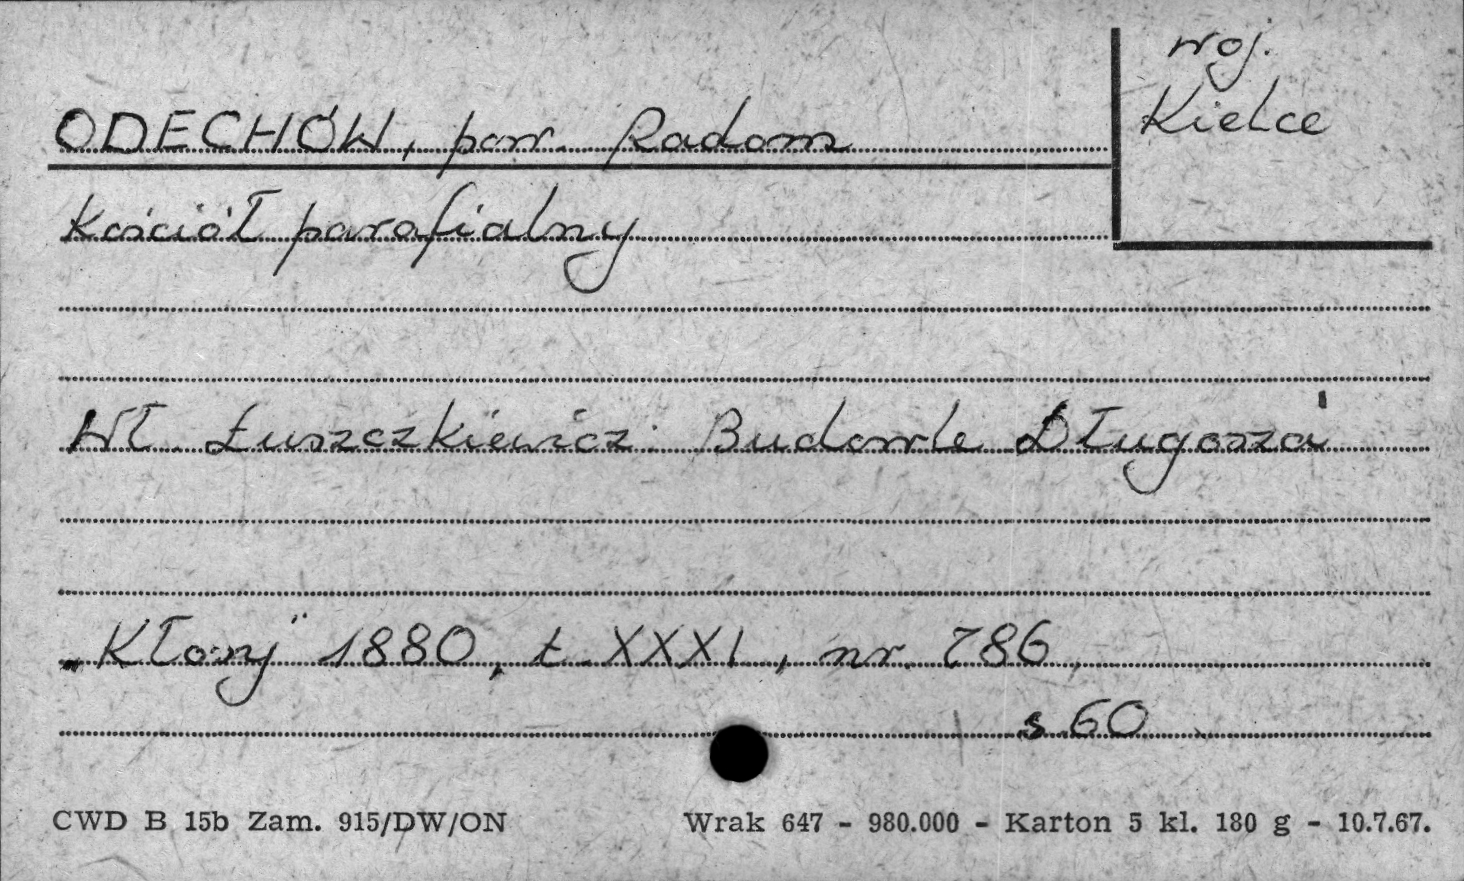 woj.
Kielce
ODECHÓW, pow. Radom
Kościół parafialny
Wł. Łuszczkiewicz: Budowle Długosza
„Kłosy" 1880, t. XXXI, nr. 786,
s. 60
CWD B 15b Zam. 915/DW/ON Wrak 647 - 980.000 - Karton 5 kl. 180 g - 10.7.67.